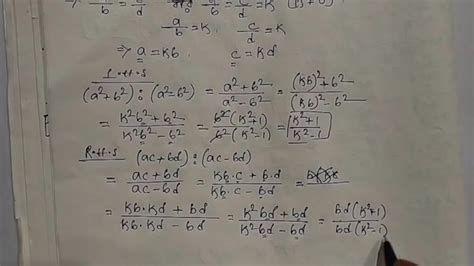 ⇒ a/b = c/d a/b = c/d = K (K≠0)
a/b = K, c/d = K
⇒ a = Kb c = Kd
(a²+b²) : (a²-b²) = a²+b² / a²-b² = (Kb)²+b² / (Kb)²-b²
= K²b²+b² / K²b²-b² = b²(K²+1) / b²(K²-1) = K²+1 / K²-1
(ac+bd) : (ac-bd)
= ac+bd / ac-bd = Kb·c+b·d / Kb·c-bd =
= Kb·Kd+bd / Kb·Kd-bd = K²bd+bd / K²bd-bd = bd(K²+1) / bd(K²-1)